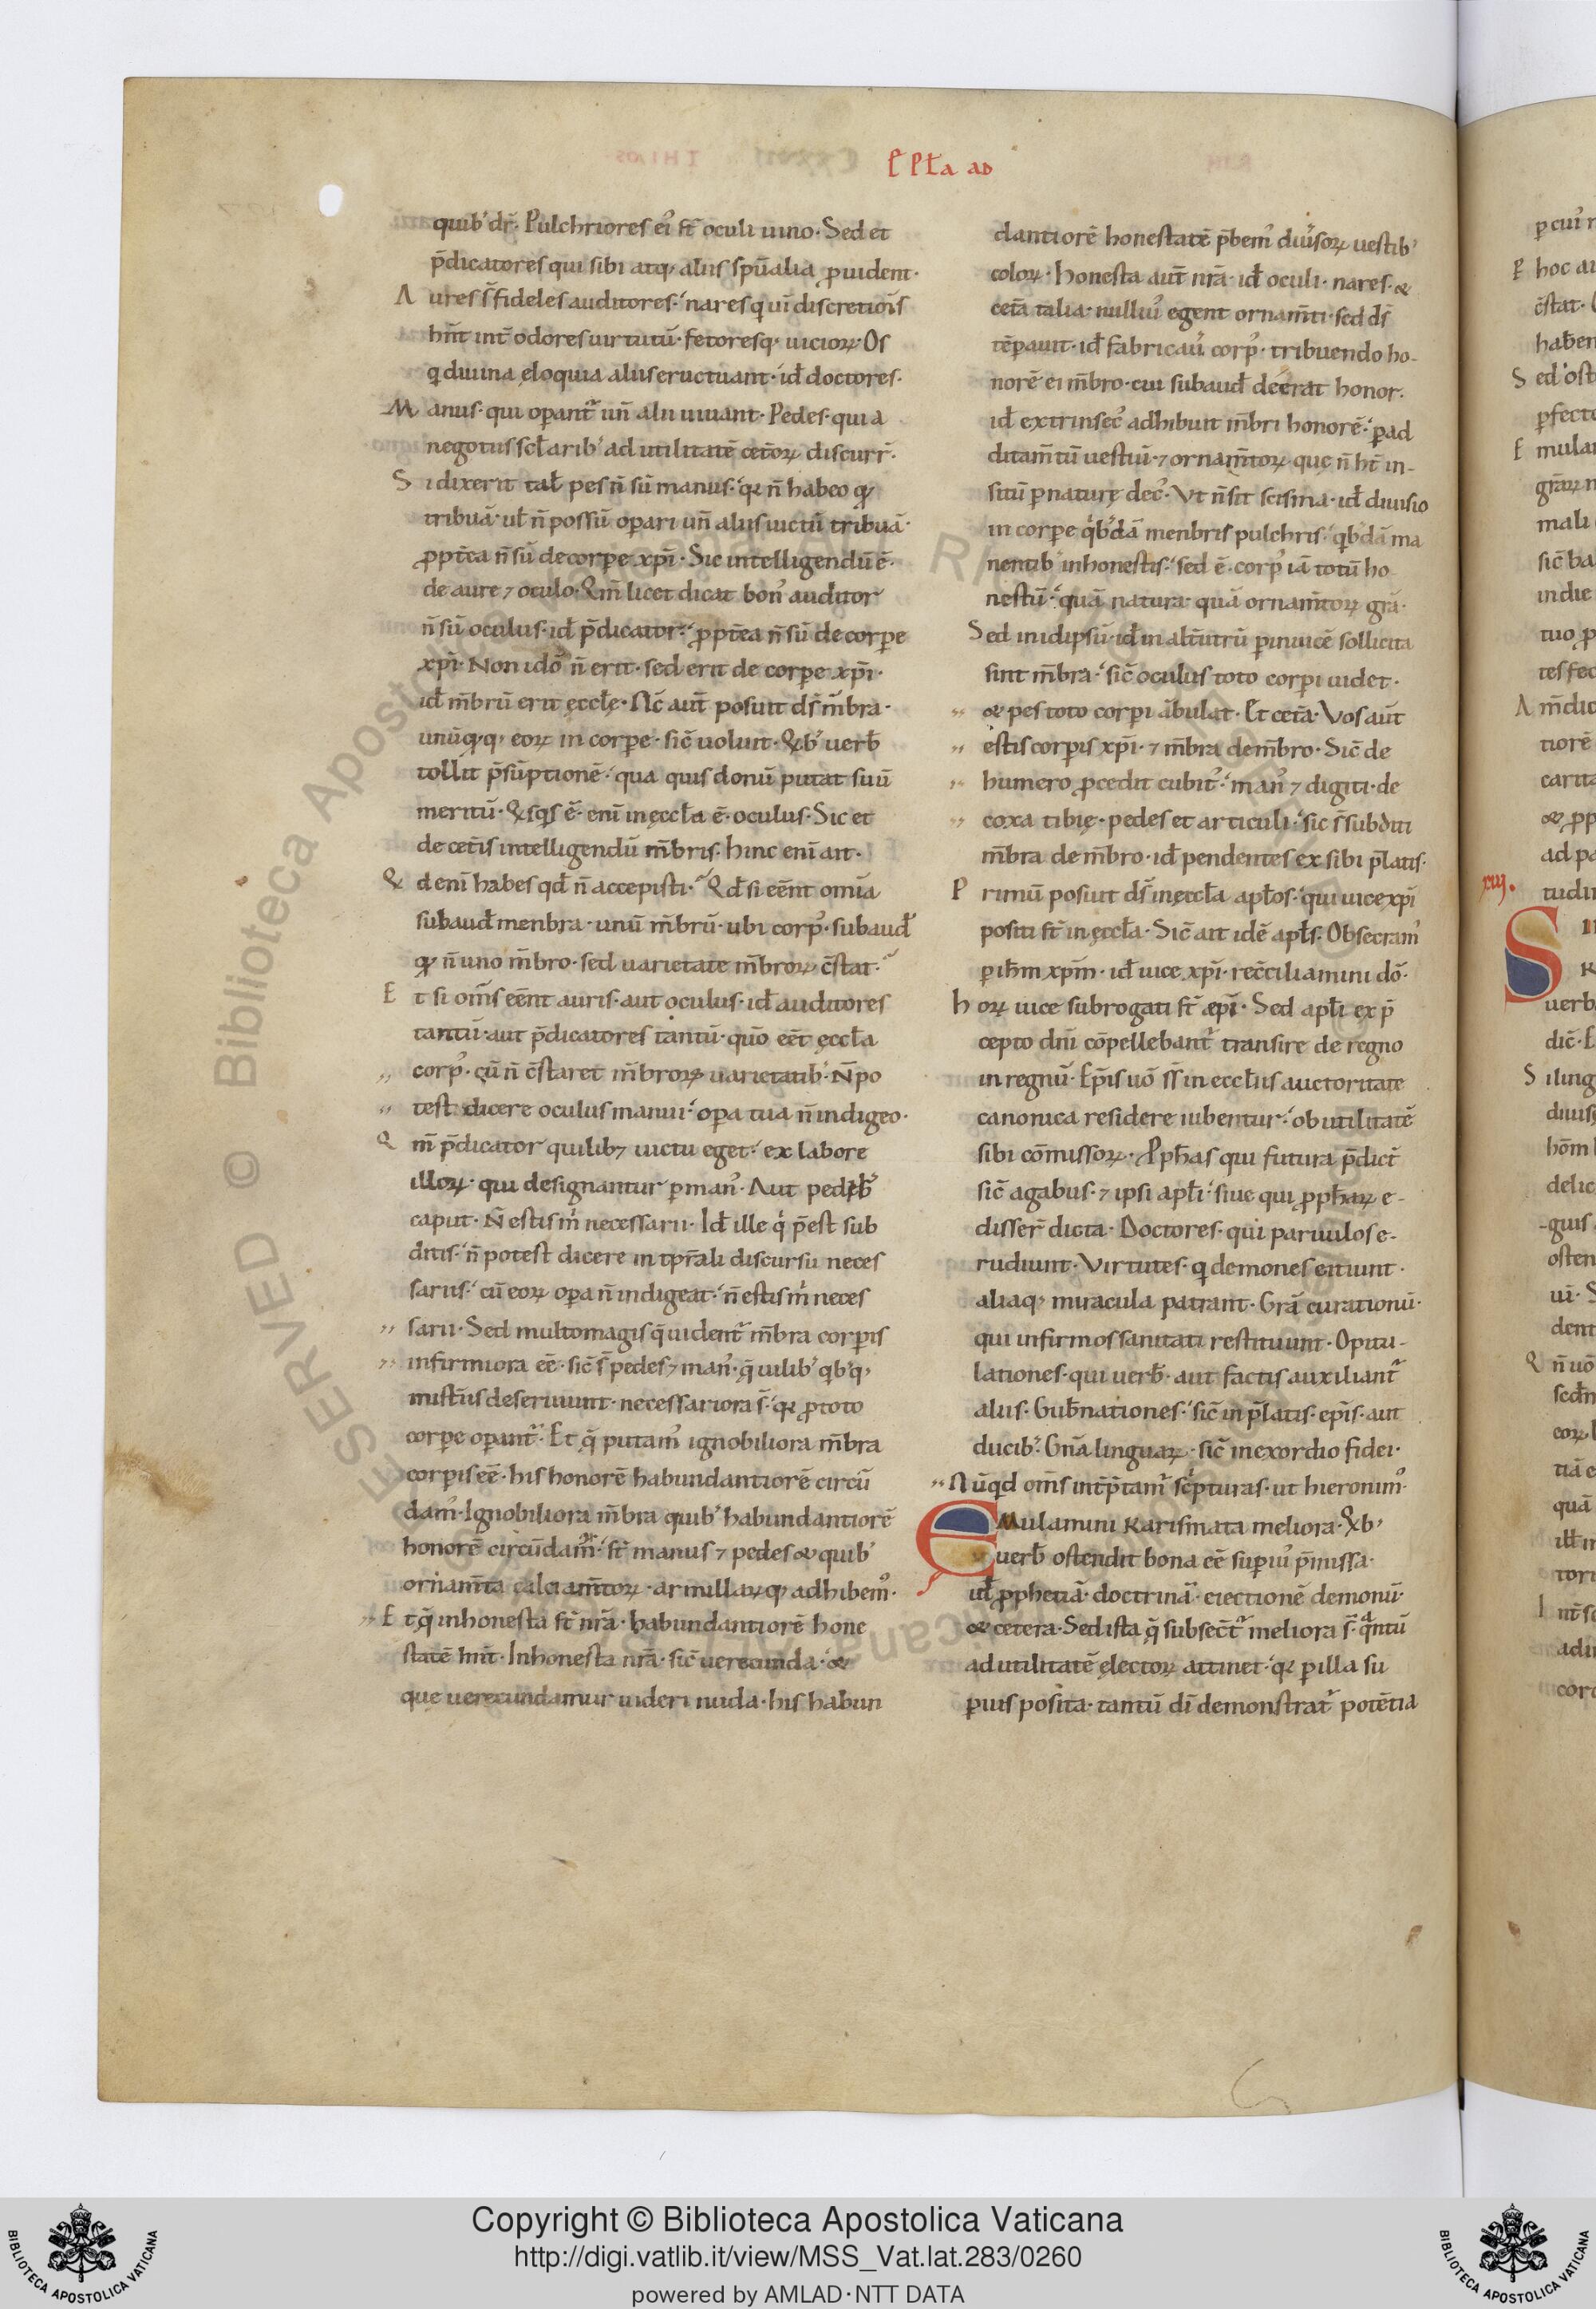 P̄ PƗa AD
quib' dr̄. Pulchriores ei' st̄ oculi uino. Sed et
p̄dicatores qui sibi atq; aliis sp̄ualia ꝓuident.
Aures s̄ fideles auditores. nares q uim̄ discretiōis
hn̄t int̄ odores uirtutū. fetoresq; uicioꝝ. Os
q diuina ęloquia aliis eructuant. id̄ doctores.
Manus. qui oꝑant᷑ un̄ alii uiuant. Pedes. qui a
negotiis sc̄larib' ad utilitatē cet̄oꝝ discurr̄.
Si dixerit tal̄ pes n̄ sū manus. qꝛ n̄ habeo qd
tribuā. ul̄ n̄ possū oꝑari un̄ aliis uictū tribuā.
ꝓpt̄ea n̄ sū de corꝑe xp̄i. Sic intelligendū ē.
de aure ⁊ oculo. Qm̄ licet dicat bon' auditor
n̄ sū oculus. id̄ p̄dicator. ꝓpt̄ea n̄ sū de corꝑe
xp̄i. Non idō n̄ erit. sed erit de corꝑe xp̄i.
id̄ m̄brū erit ęccl̄ę. Nc̄ aut̄ posuit ds̄ m̄bra.
unūqꝗ; eoꝝ in corꝑe. sic̄ uoluit. Qib' uerb̄
tollit p̄sūptionē. qua quis donū putat suū
meritū. Qisqs ē. enī in ęccl̄a ē. oculus. Sic et
de cet̄is intelligendū m̄bris. Hinc enī ait.
Qd enī habes qd̄ n̄ accepisti. Qd̄ si eēnt omīa
subaud̄ menbra. unū m̄brū. ubi corp'. subaud̄
qd n̄ uno m̄bro. sed uarietate m̄broꝝ c̄stat.
Et si om̄s eēnt auris. aut oculus. id̄ auditores
tantū. aut p̄dicatores tantū. quō eēt ęccl̄a
corp'. cū n̄ c̄staret m̄broꝝ uarietatib'. N̄ po
test dicere oculus manui. oꝑa tua n̄ indigeo.
Qm̄ p̄dicator quilib; uictu eget. ex labore
illoꝝ. qui designantur ꝑ man'. Aut pedib'
caput. N̄ estis m̄ necessarii. Id̄ ille q̇ p̄est sub
ditis. n̄ potest dicere in tp̄rali discursu neces
sariis. cū eoꝝ oꝑa n̄ indigeat. n̄ estis m̄ neces
sarii. Sed multomagis q̄ uident᷑ m̄bra corꝑis
infirmiora eē. sic̄ s̄ pedes ⁊ man'. q̄ uilib' qb'q;
mist̄iis deseruiunt. necessariora s̄. qꝛ ꝓ toto
corꝑe oꝑant᷑. Et q̄ putam' ignobiliora m̄bra
corꝑis eē. his honorē habundantiorē circū
dam'. Ignobiliora m̄bra quib' habundantiorē
honorē circūdam'. st̄ manus ⁊ pedes & quib'
ornam̄ta calciam̄toꝝ. armillaꝝq; adhibem'.
Et q̄ inhonesta st̄ nr̄a. habundantiorē hone
statē hn̄t. Inhonesta nr̄a. sic̄ uerecunda. &
que uerecundamur uideri nuda. his habun
dantiorē honestatē p̄bem' diuersoꝝ uestib'
coloꝝ. Honesta aut̄ nr̄a. id̄ oculi. nares. &
cet̄a talia. nulliu' egent ornam̄ti. sed ds̄
tēꝑauit. id̄ fabricau' corp'. tribuendo ho-
norē ei m̄bro. cui subaud̄ deerat honor.
id̄ extrinsec' adhibuit m̄bri honorē. ꝑ ad
ditam̄tū uestiū. ⁊ ornam̄toꝝ. que n̄ ht̄ in-
situ ꝑ naturę dec'. Vt n̄ sit scisma. id̄ diuisio
in corꝑe qb'dā menbris pulchris. qb'dā ma
nentib' inhonestis. sed ē. corp' iā totū ho
nestū. quā natura. quā ornam̄toꝝ grā.
Sed in idipsū. id̄ in alt̄utrū ꝑ inuicē sollicita
sint m̄bra. sic̄ oculus toto corꝑi uidet.
& pes toto corꝑi ābulat. Et cet̄a. Vos aut̄
estis corꝑis xp̄i. ⁊ m̄bra de m̄bro. Sic̄ de
humero ꝓcedit cubit'. man' ⁊ digiti. de
coxa tibię. pedes et articuli. sic s̄ subditi
m̄bra de m̄bro. id̄ pendentes ex sibi p̄latis.
Primū posuit ds̄ in ęccl̄a apl̄os. qui uice xp̄i
positi st̄ in ęccl̄a. Sic̄ ait idē apl̄s. Obsecram'
ꝑ ih̄m xp̄m. id̄ uice xp̄i. rec̄ciliamini dō.
Hoꝝ uice subrogati st̄ ep̄i. Sed apl̄i ex p̄
cepto dn̄i cōpellebant᷑ transire de regno
in regnū. Ep̄is uō s̄s̄ in eccl̄iis auctoritate
canonica residere iubentur. ob utilitatē
sibi cōmissoꝝ. Ꝓph̄as qui futura p̄dict̄
sic̄ agabus. ⁊ ipsi apl̄i. siue qui ꝓph̄aꝝ e-
disser̄ dicta. Doctores. qui paruulos e-
rudiunt. Virtutes. q demones eitiunt.
aliaq; miracula patrant. Grā curationū.
qui infirmos sanitati restituunt. Opitu-
lationes. qui uerb̄. aut factis auxiliant᷑
aliis. Gub̄nationes. sic̄ in p̄latis. ep̄is. aut
ducib'. Gn̄a linguaꝝ. sic̄ in exordio fidei.
Nūqd om̄s int̄p̄tam᷑ sc̄pturas. ut hieronim'.
EMulamini karismata meliora. Qib'
uerb̄ ostendit bona eē superiu' p̄missa.
ul̄ ꝓphetiā. doctrinā. eiectionē demonū.
& cetera. Sed ista q̄ subsect᷑ meliora s̄. qntū
ad utilitatē ęlectoꝝ attinet. qꝛ ꝑ illa su
ꝑius posita. tantū dī demonstrat᷑ potētia
xiii.
Copyright © Biblioteca Apostolica Vaticana
http://digi.vatlib.it/view/MSS_Vat.lat.283/0260
powered by AMLAD·NTT DATA